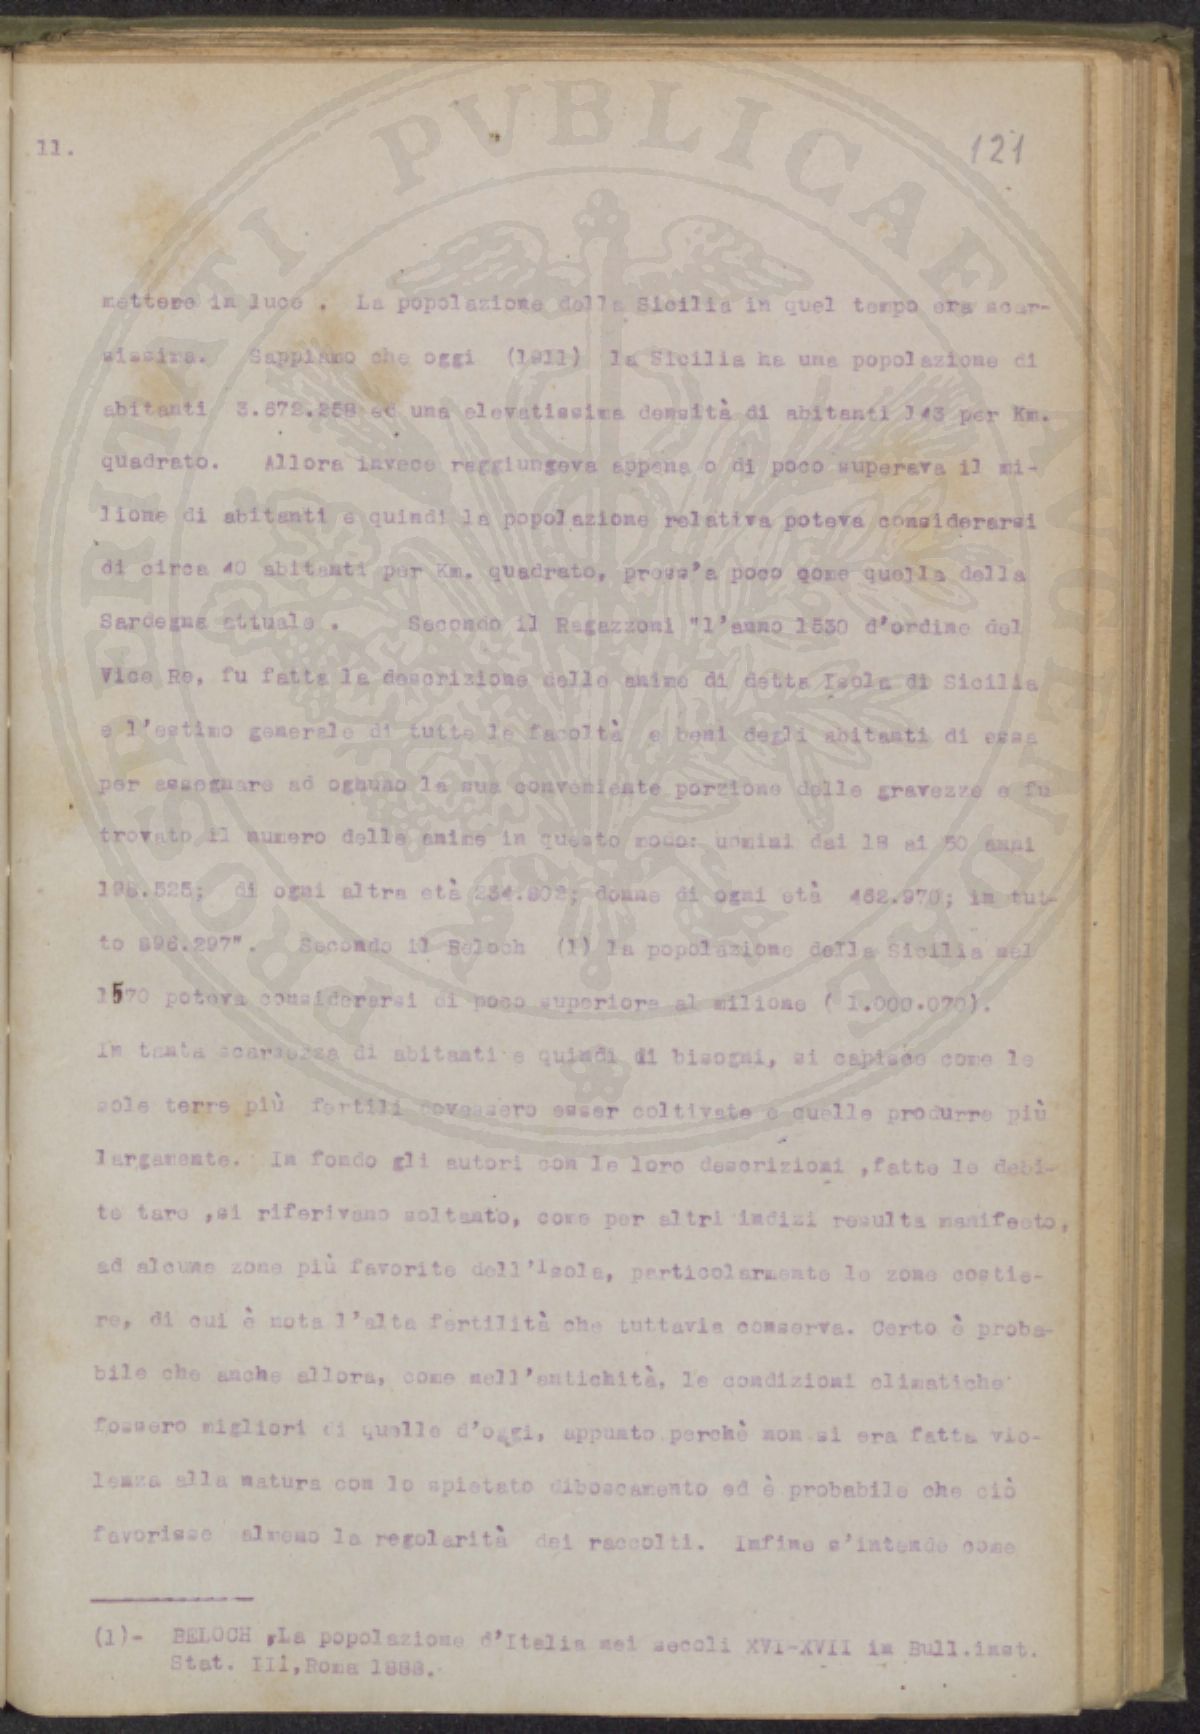 11.
121
mettere in luce . La popolazione della Sicilia in quel tempo era scar-
sissima. Sappiamo che oggi (1911) la Sicilia ha una popolazione di
abitanti 3.672.258 ed una elevatissima densità di abitanti 143 per Km.
quadrato. Allora invece raggiungeva appena o di poco superava il mi-
lione di abitanti e quindi la popolazione relativa poteva considerarsi
di circa 40 abitanti per Km. quadrato, press'a poco come quella della
Sardegna attuale . Secondo il Ragazzoni "l'anno 1530 d'ordine del
Vice Re, fu fatta la descrizione delle anime di detta Isola di Sicilia
e l'estimo generale di tutte le facoltà e beni degli abitanti di essa
per assegnare ad ognuno la sua conveniente porzione delle gravezze e fu
trovato il numero delle anime in questo modo: uomini dai 18 ai 50 anni
198.525; di ogni altra età 234.802; donne di ogni età 462.970; in tut-
to 896.297". Secondo il Beloch (1) la popolazione della Sicilia nel
1570 poteva considerarsi di poco superiore al milione ( 1.000.070).
In tanta scarsezza di abitanti e quindi di bisogni, si capisce come le
sole terre più fertili dovessero esser coltivate e quelle produrre più
largamente. In fondo gli autori con le loro descrizioni ,fatte le debi-
te tare ,si riferivano soltanto, come per altri indizi resulta manifesto,
ad alcune zone più favorite dell'Isola, particolarmente le zone costie-
re, di cui è nota l'alta fertilità che tuttavia conserva. Certo è proba-
bile che anche allora, come nell'antichità, le condizioni climatiche
fossero migliori di quelle d'oggi, appunto perchè non si era fatta vio-
lenza alla natura con lo spietato diboscamento ed è probabile che ciò
favorisse almeno la regolarità dei raccolti. Infine s'intende come
(1)- BELOCH ,La popolazione d'Italia nei secoli XVI-XVII in Bull.inst.
Stat. III,Roma 1888.
PROSPERITATI PUBLICAE AUGENDAE